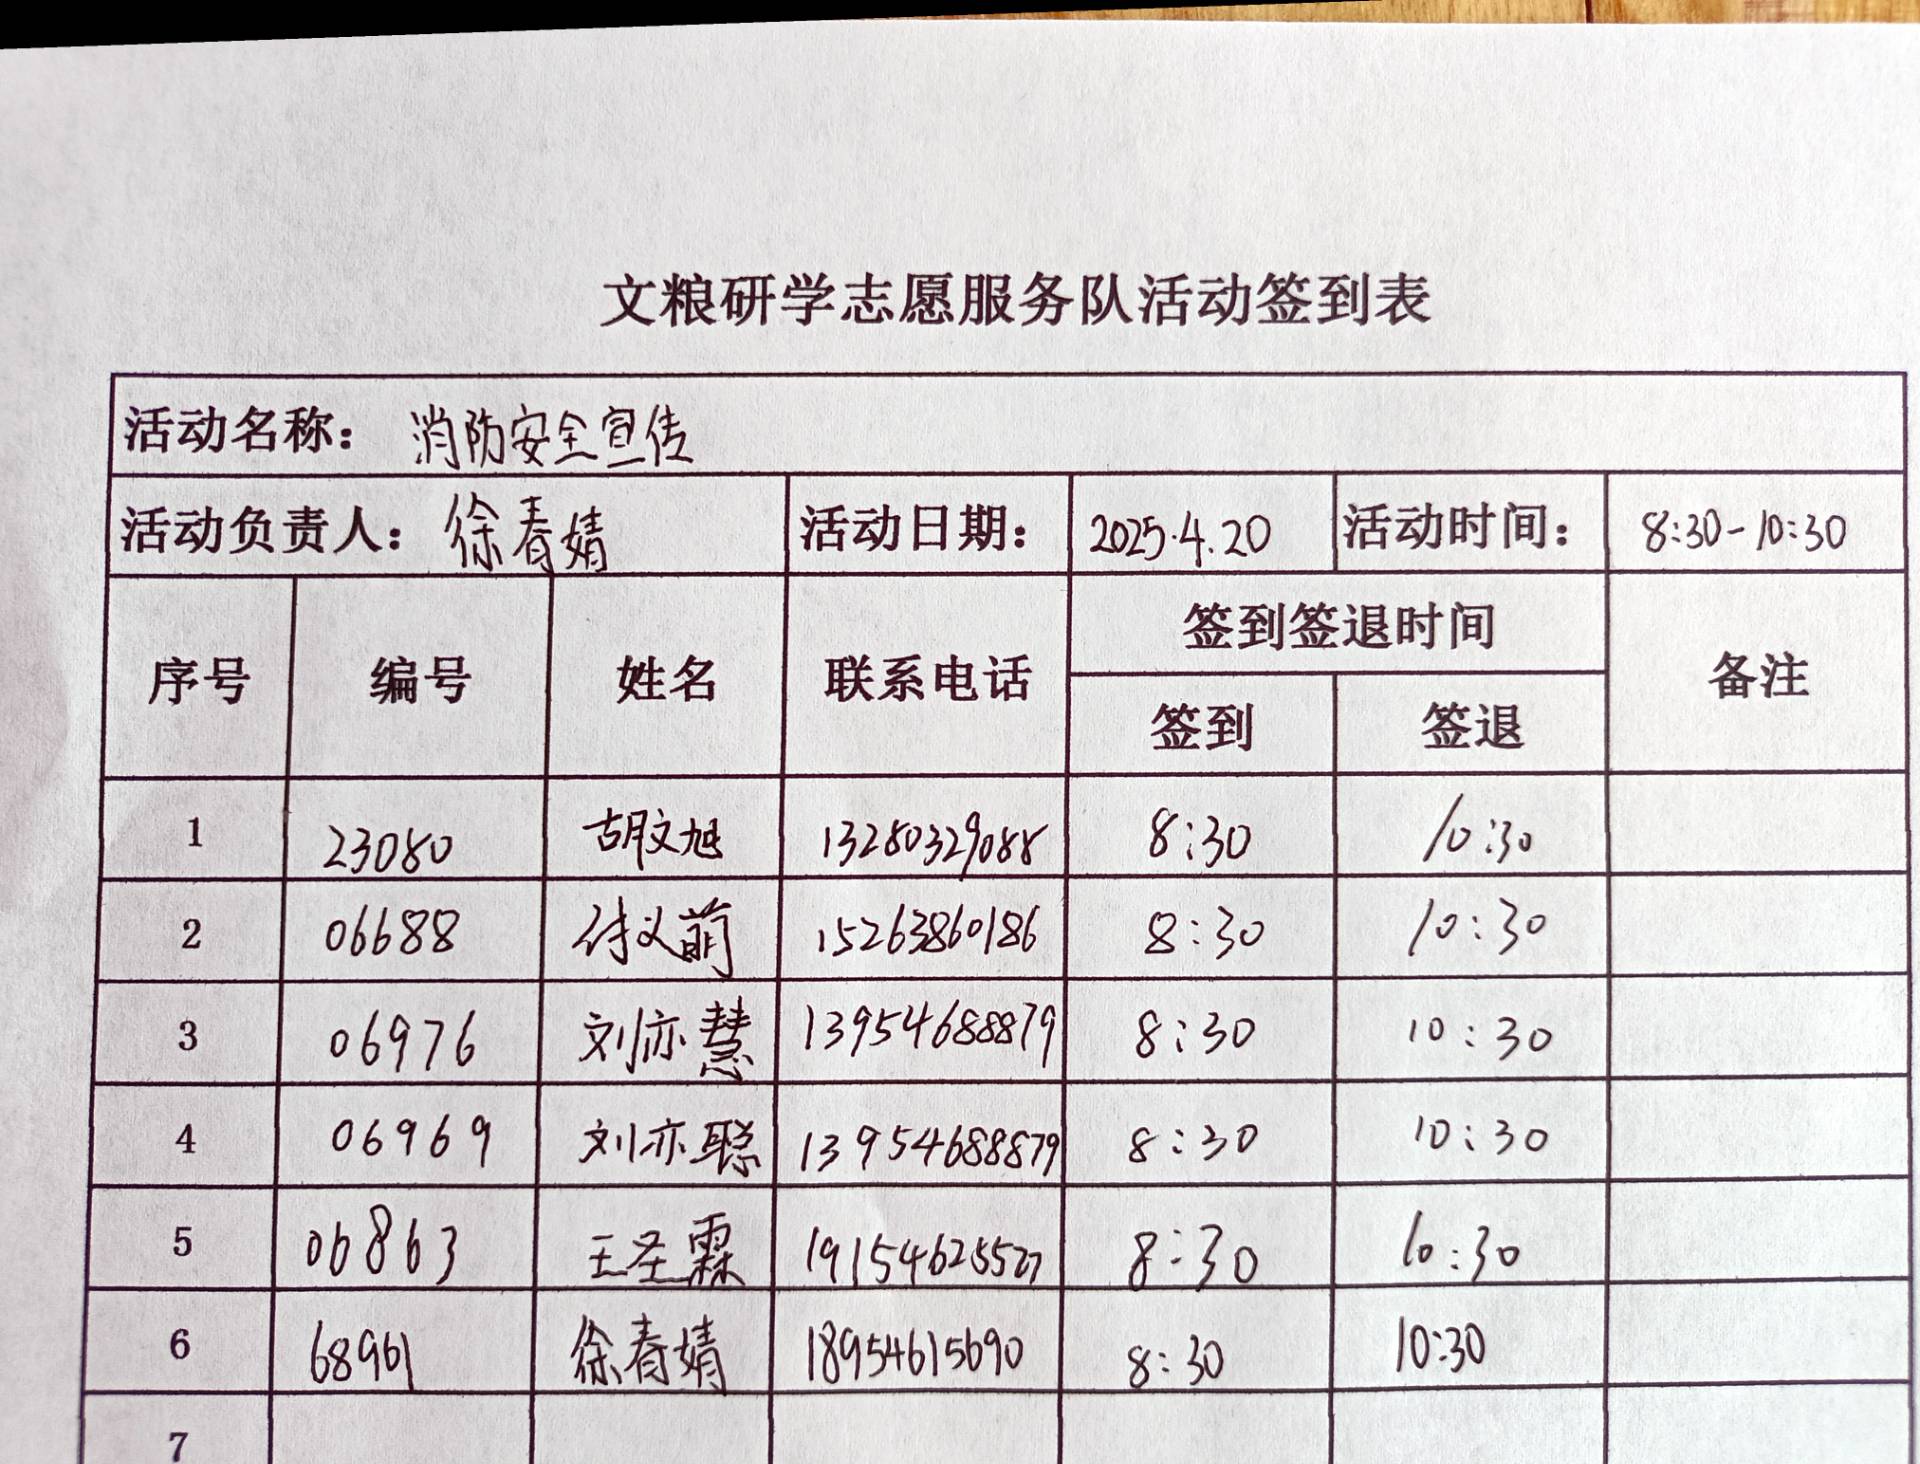 文粮研学志愿服务队活动签到表
活动名称： 消防安全宣传
活动负责人： 徐春婧 活动日期： 2025.4.20 活动时间： 8:30-10:30
序号 编号 姓名 联系电话 签到签退时间 备注
签到 签退
1 23080 胡文旭 13280329088 8:30 10:30
2 06688 付义萌 15263860186 8:30 10:30
3 06976 刘亦慧 13954688879 8:30 10:30
4 06969 刘亦聪 13954688879 8:30 10:30
5 06863 王圣霖 19154625527 8:30 10:30
6 68961 徐春婧 18954615690 8:30 10:30
7